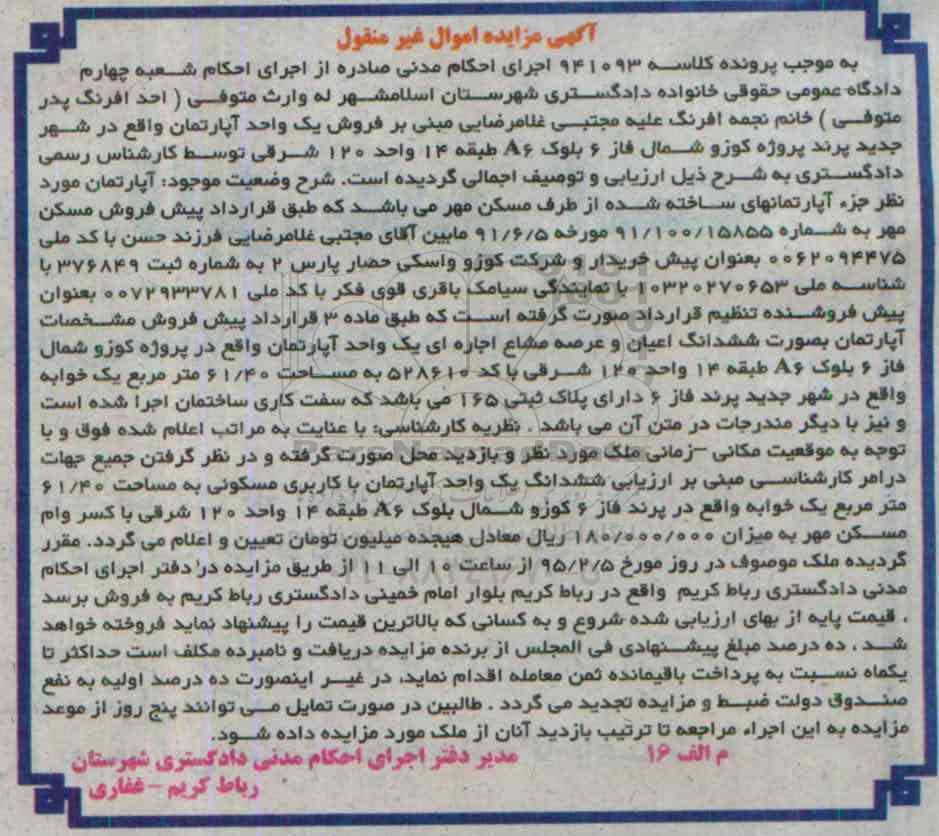 آگهی مزایده اموال غیر منقول
به موجب پرونده کلاسه ۹۴۱۰۹۳ اجرای احکام مدنی صادره از اجرای احکام شعبه چهارم
دادگاه عمومی حقوقی خانواده دادگستری شهرستان اسلامشهر له وراث متوفی ( احد افرنگ پدر
متوفی ) خانم نجمه افرنگ علیه مجتبی غلامرضایی مبنی بر فروش یک واحد آپارتمان واقع در شهر
جدید پرند پروژه کوزو شمال فاز ۶ بلوک A۶ طبقه ۱۴ واحد ۱۲۰ شرقی توسط کارشناس رسمی
دادگستری به شرح ذیل ارزیابی و توصیف اجمالی گردیده است. شرح وضعیت موجود: آپارتمان مورد
نظر جزء آپارتمانهای ساخته شده از طرف مسکن مهر می باشد که طبق قرارداد پیش فروش مسکن
مهر به شماره ۹۱/۱۰۰/۱۵۸۵۵ مورخه ۹۱/۶/۵ مابین آقای مجتبی غلامرضایی فرزند حسن با کد ملی
۰۰۶۲۰۹۴۴۷۵ بعنوان پیش خریدار و شرکت کوزو واسکی حصار پارس ۲ به شماره ثبت ۳۷۶۸۴۹ با
شناسه ملی ۱۰۳۲۰۲۷۰۶۵۳ با نمایندگی سیامک باقری قوی فکر با کد ملی ۰۰۷۲۹۳۳۷۸۱ بعنوان
پیش فروشنده تنظیم قرارداد صورت گرفته است که طبق ماده ۳ قرارداد پیش فروش مشخصات
آپارتمان بصورت ششدانگ اعیان و عرصه مشاع اجاره ای یک واحد آپارتمان واقع در پروژه کوزو شمال
فاز ۶ بلوک A۶ طبقه ۱۴ واحد ۱۲۰ شرقی با کد ۵۲۸۶۱۰ به مساحت ۶۱/۴۰ متر مربع یک خوابه
واقع در شهر جدید پرند فاز ۶ دارای پلاک ثبتی ۱۶۵ می باشد که سفت کاری ساختمان اجرا شده است
و نیز با دیگر مندرجات در متن آن می باشد . نظریه کارشناسی: با عنایت به مراتب اعلام شده فوق و با
توجه به موقعیت مکانی –زمانی ملک مورد نظر و بازدید محل صورت گرفته و در نظر گرفتن جمیع جهات
درامر کارشناسی مبنی بر ارزیابی ششدانگ یک واحد آپارتمان با کاربری مسکونی به مساحت ۶۱/۴۰
متر مربع یک خوابه واقع در پرند فاز ۶ کوزو شمال بلوک A۶ طبقه ۱۴ واحد ۱۲۰ شرقی با کسر وام
مسکن مهر به میزان ۱۸۰/۰۰۰/۰۰۰ ریال معادل هیجده میلیون تومان تعیین و اعلام می گردد. مقرر
گردیده ملک موصوف در روز مورخ ۹۵/۲/۵ از ساعت ۱۰ الی ۱۱ از طریق مزایده در دفتر اجرای احکام
مدنی دادگستری رباط کریم واقع در رباط کریم بلوار امام خمینی دادگستری رباط کریم به فروش برسد
. قیمت پایه از بهای ارزیابی شده شروع و به کسانی که بالاترین قیمت را پیشنهاد نماید فروخته خواهد
شد . ده درصد مبلغ پیشنهادی فی المجلس از برنده مزایده دریافت و نامبرده مکلف است حداکثر تا
یکماه نسبت به پرداخت باقیمانده ثمن معامله اقدام نماید، در غیر اینصورت ده درصد اولیه به نفع
صندوق دولت ضبط و مزایده تجدید می گردد . طالبین در صورت تمایل می توانند پنج روز از موعد
مزایده به این اجراء مراجعه تا ترتیب بازدید آنان از ملک مورد مزایده داده شود.
م الف ۱۶ مدیر دفتر اجرای احکام مدنی دادگستری شهرستان
رباط کریم – غفاری